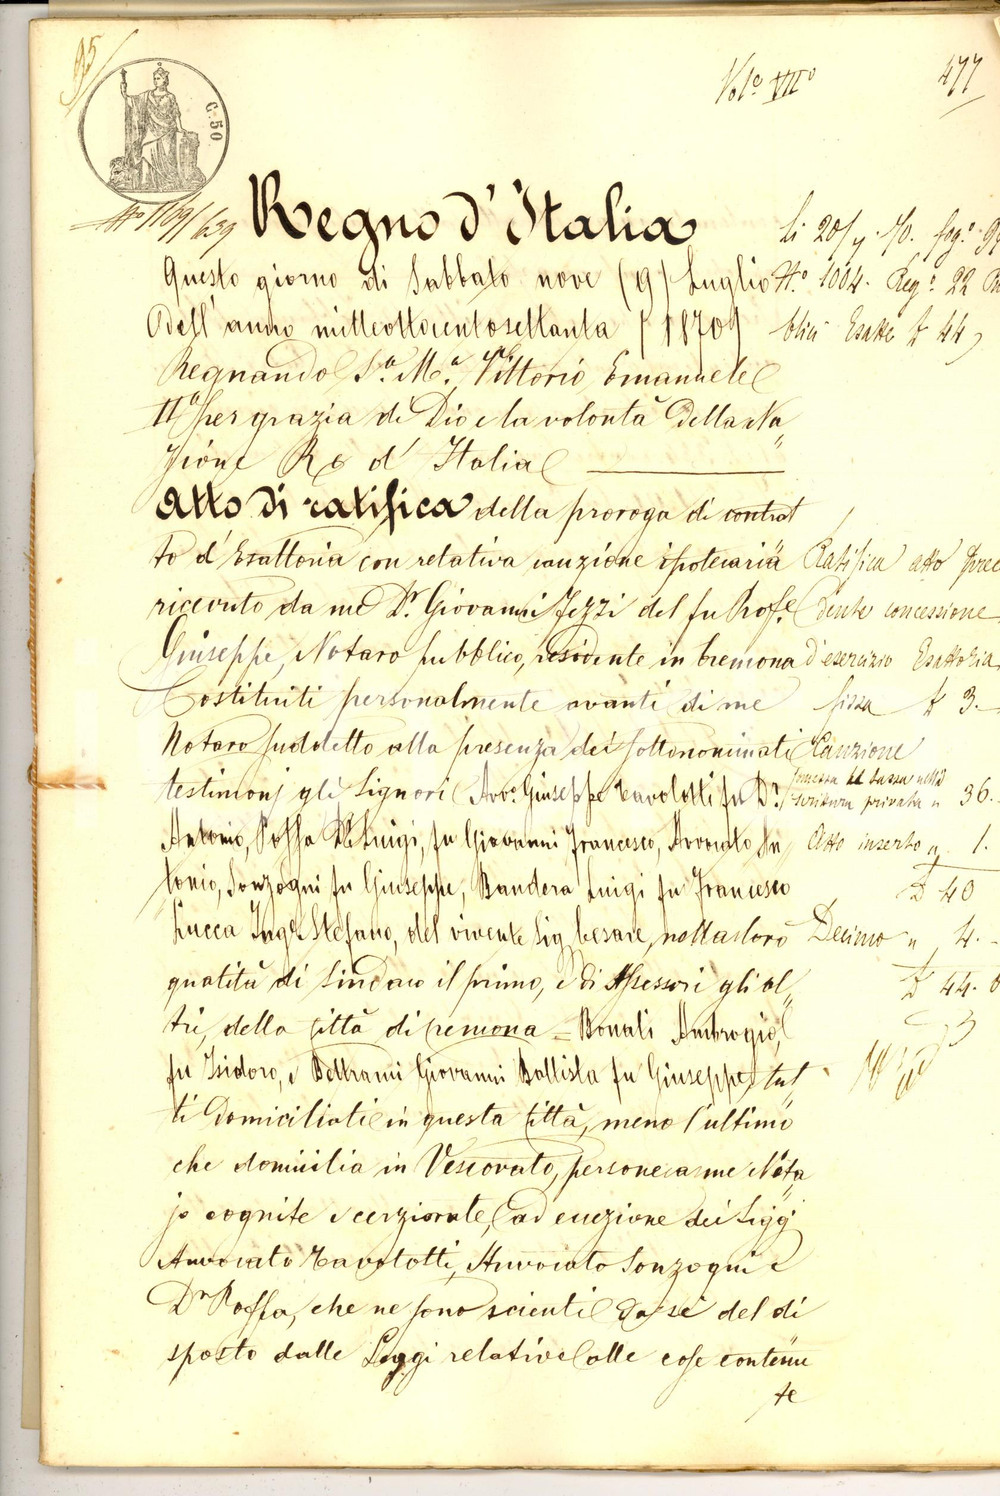 95
Vol.e VII°
477
C. 50
N° 1109/639
Regno d'Italia
Questo giorno di Sabbato nove (9) Luglio
dell'anno milleottocentosettanta (1870)
Regnando S.a M.a Vittorio Emanuele
II° per grazia di Dio e la volontà della Na
zione Re d'Italia
Atto di ratifica della proroga di contrat
to d'Esattoria con relativa cauzione ipotecaria
ricevuto da me D.r Giovanni Fezzi del fu Prof.e
Giuseppe, Notaro pubblico, residente in Cremona
Costituiti personalmente avanti di me
Notaro suddetto alla presenza dei sottonominati
testimonj gli Signori Avv.o Giuseppe Tavolotti fu D.r
Antonio, Poffa D.r Luigi, fu Giovanni Francesco, Avvocato An
tonio, Sonzogni fu Giuseppe, Bandera Luigi fu Francesco
Lucca Ing.e Stefano, del vivente Sig. Cesare, nella loro
qualità di Sindaco il primo, e di Assessori gli al
tri, della città di Cremona = Bonali Ambrogio,
fu Isidoro, e Beltrami Giovanni Battista fu Giuseppe, tut
ti domiciliati in questa città, meno l'ultimo
che domicilia in Vescovato, persone a me Nota
jo cognite e cerziorate, ad eccezione dei Sigg.i
Avvocato Tavolotti, Avvocato Sonzogni e
D.r Poffa, che ne sono scienti da sé del di
sposto dalle Leggi relative alle cose contenu
te
li 20/7 70. fog.o
N.o 1004. Reg.o 22
blici Esatte £ 44
Ratifica atto prece
dente concessione
d'esercizio Esattoria
fissa £ 3.-
Cauzione
scrittura privata " 36.
Atto inserto " 1.
£ 40
Decimo " 4.-
£ 44.